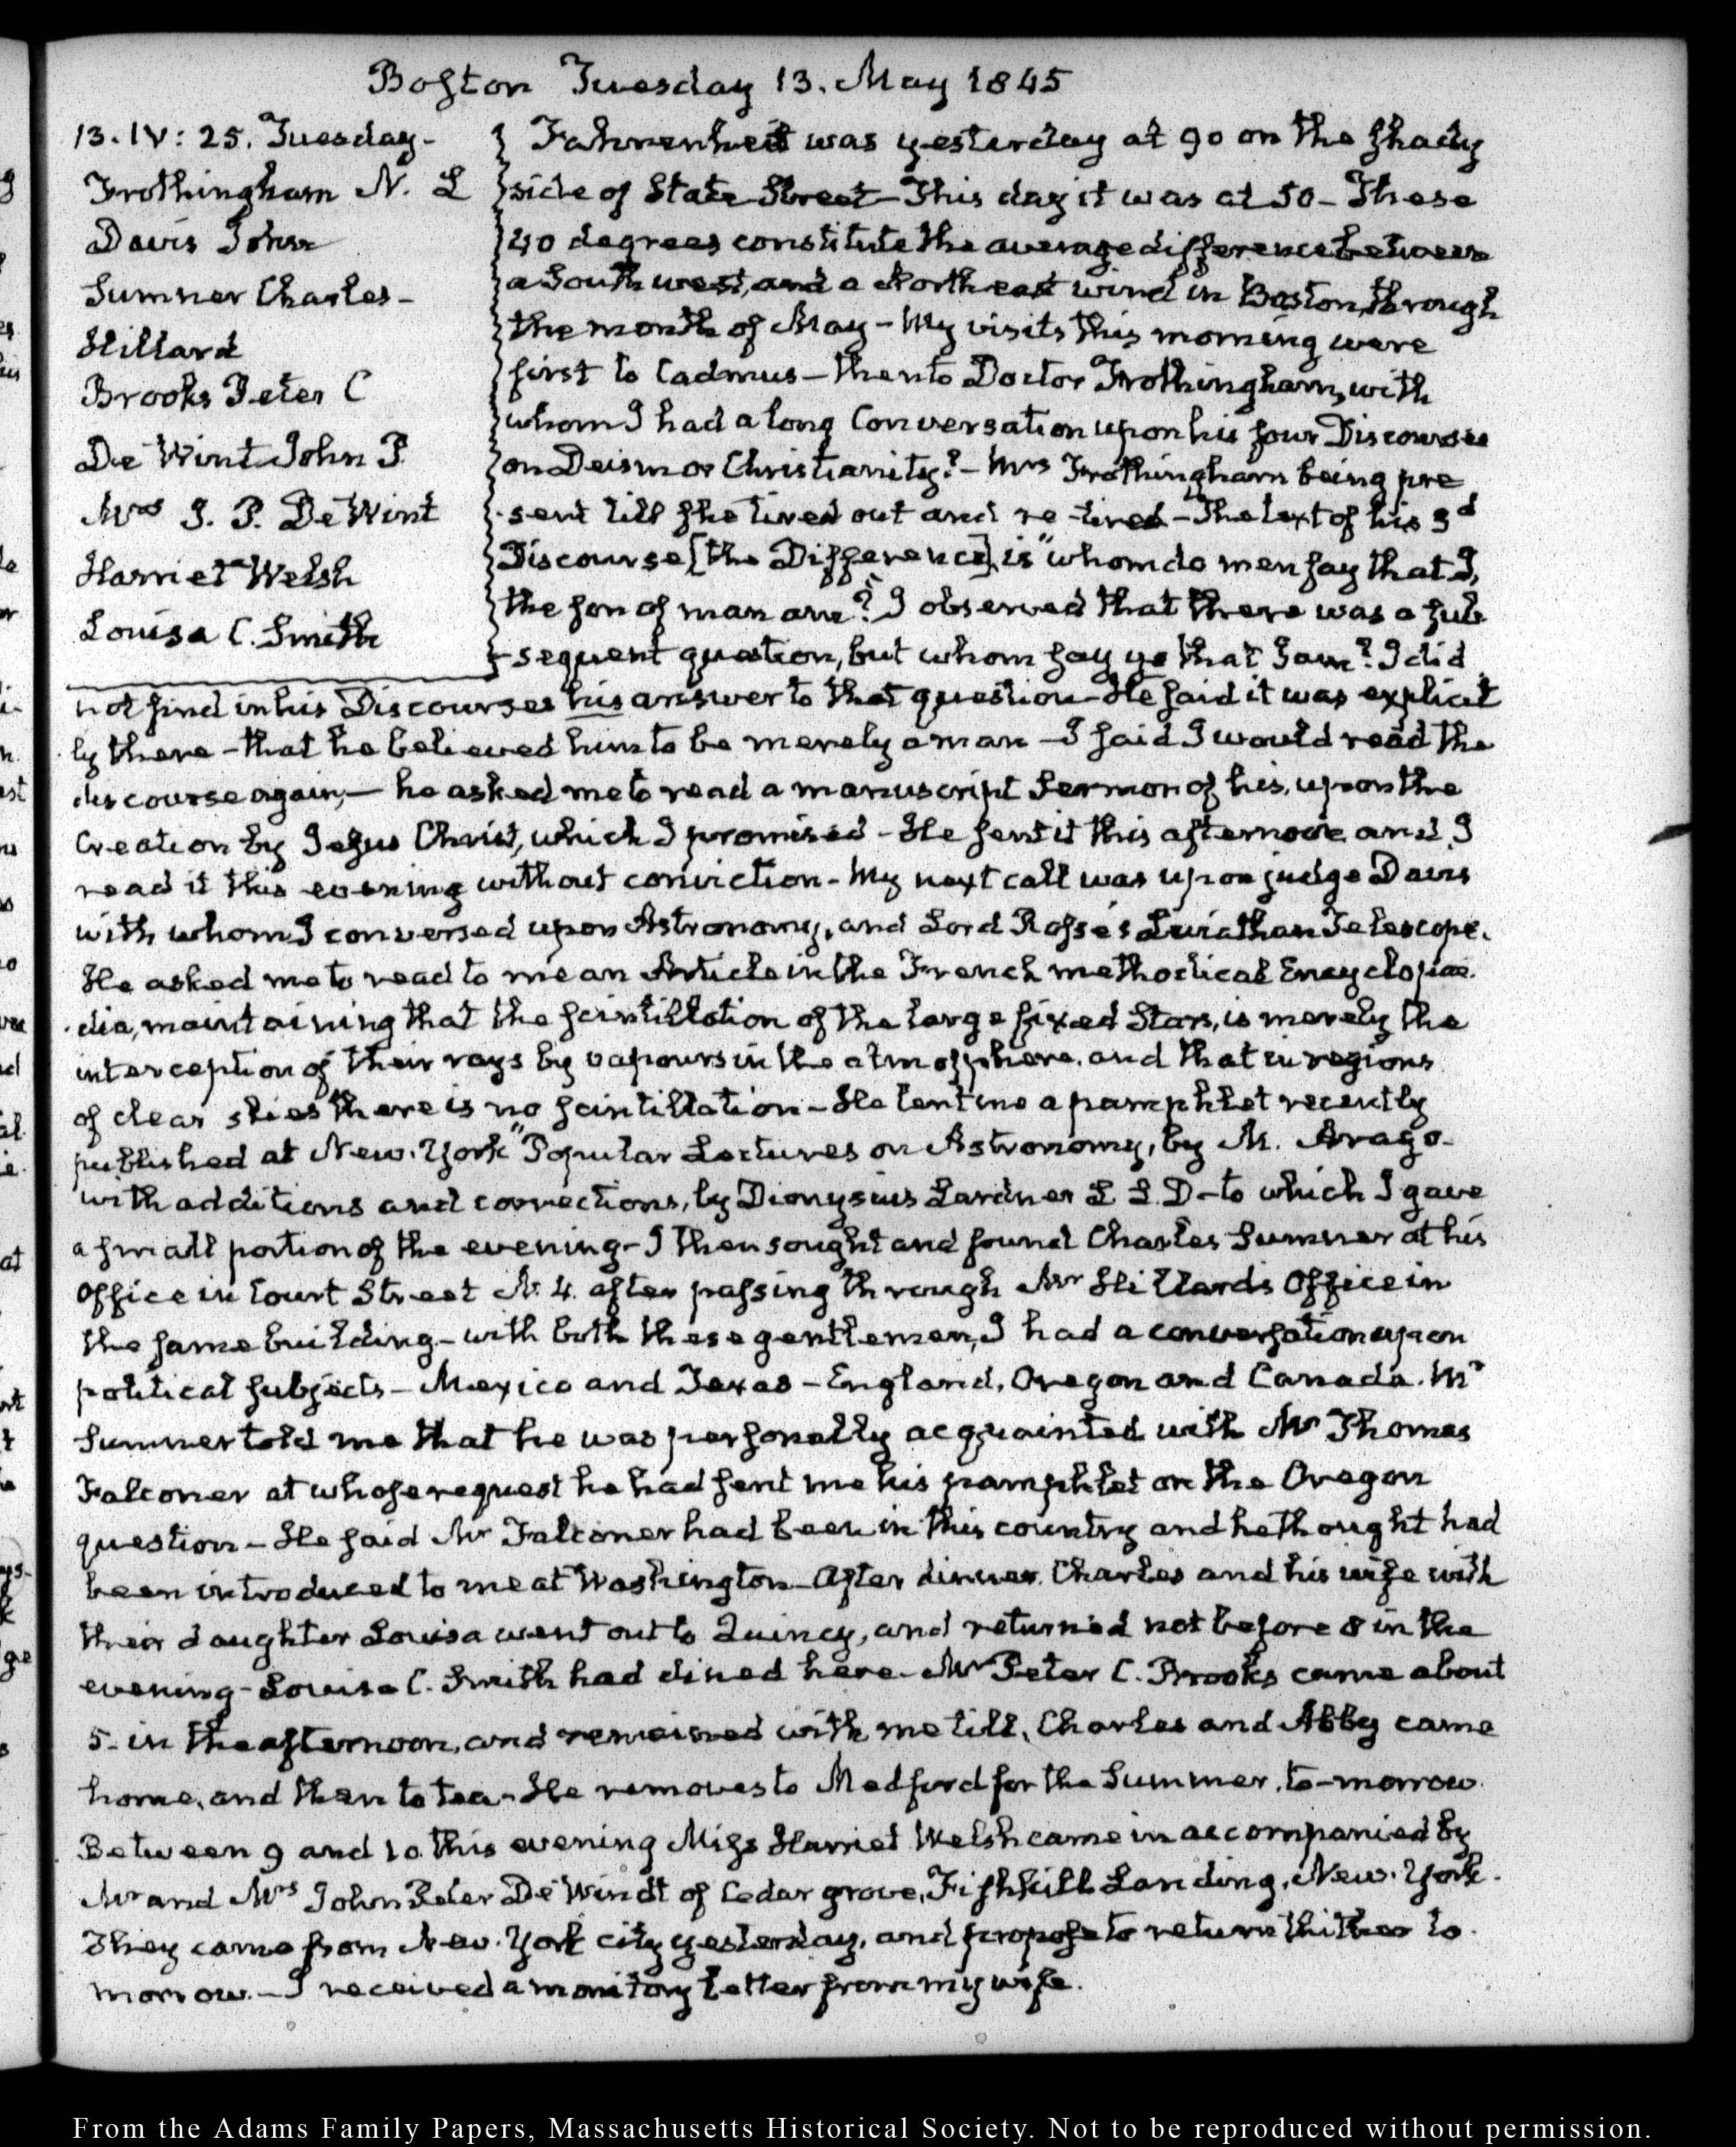 Boston Tuesday 13. May 1845
13. IV: 25. Tuesday-
Frothingham N. L
Davis John
Sumner Charles-
Hillard
Brooks Peter C
De Wint John P.
Mrs J. P. De Wint
Harriet Welsh
Louisa C. Smith
Fahrenheit was yesterday at 90 on the shady
side of State Street- This day it was at 50- These
40 degrees constitute the average difference between
a South west, and a North east wind in Boston, through
the month of May- My visits this morning were
first to Cadmus- then to Doctor Frothingham, with
whom I had a long Conversation upon his four Discourses
on Deism or Christianity?- Mrs Frothingham being pre
-sent till she tired out and re-tired- The text of his 3d
Discourse [the Difference], is "whom do men say that I,
the son of man am"? I observed that there was a sub
-sequent question, but whom say ye that I am? I did
not find in his Discourses his answer to that question- He said it was explicit
ly there- that he believed him to be merely a man- I said I would read the
discourse again;- he asked me to read a manuscript Sermon of his, upon the
Creation by Jesus Christ, which I promised- He sent it this afternoon and I
read it this evening without conviction- My next call was upon judge Davis
with whom I conversed upon Astronomy, and Lord Rosse's Leviathan Telescope.
He asked me to read to me an Article in the French methodical Encyclopae
-dia, maintaining that the scintillation of the large fixed Stars, is merely the
interception of their rays by vapours in the atmosphere. and that in regions
of clear skies there is no scintillation- He lent me a pamphlet recently
published at New-York "Popular Lectures on Astronomy, by M. Arago-
with additions and corrections, by Dionysius Lardner L L. D- to which I gave
a small portion of the evening- I then sought and found Charles Sumner at his
Office in Court Street N. 4. after passing through Mr Hillard's Office in
the same building- with both these gentlemen, I had a conversation upon
political subjects- Mexico and Texas- England, Oregon and Canada. Mr
Sumner told me that he was personally acquainted with Mr Thomas
Falconer at whose request he had sent me his pamphlet on the Oregon
question- He said Mr Falconer had been in this country and he thought had
been introduced to me at Washington- After dinner. Charles and his wife with
their daughter Louisa went out to Quincy, and returned not before 8 in the
evening- Louisa C. Smith had dined here- Mr Peter C. Brooks came about
5. in the afternoon, and remained with me till, Charles and Abby came
home, and then to tea- He removes to Medford for the Summer, to-morrow.
Between 9 and 10 this evening Miss Harriet Welsh came in accompanied by
Mr and Mrs John Peter De Windt of Cedar grove, Fishkill Landing, New-York.
They came from New-York city yesterday, and propose to return thither to-
morrow.- I received a monitory letter from my wife.
From the Adams Family Papers, Massachusetts Historical Society. Not to be reproduced without permission.